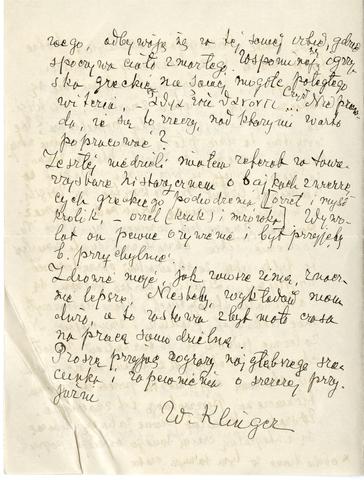 rzego, odbywają się w tej samej izbie, gdzie
spoczywa ciało zmarłego. Wspomnij igrzy-
ska greckie na samej mogile poległego
witezia,
da, że są to rzeczy, nad którymi warto
popracować?
Zeszłej niedzieli miałem referat w towa-
rzystwie historycznem o bajkach zwierzę-
cych greckiego pochodzenia [orzeł i mysi
królik – orzeł (kruk) i mrówka]. Wywo-
łał on pewne ożywienie i był przyjęty
b. przychylnie.
Zdrowie moje, jak zawsze zimą, znacz-
nie lepsze. Niestety, wykładów mam
dużo, a to zostawia zbyt mało czasu
na pracę samodzielną.
Proszę przyjąć wyrazy najgłębszego sza-
cunku i zapewnienia o szczerej przy-
jaźni
W. Klinger